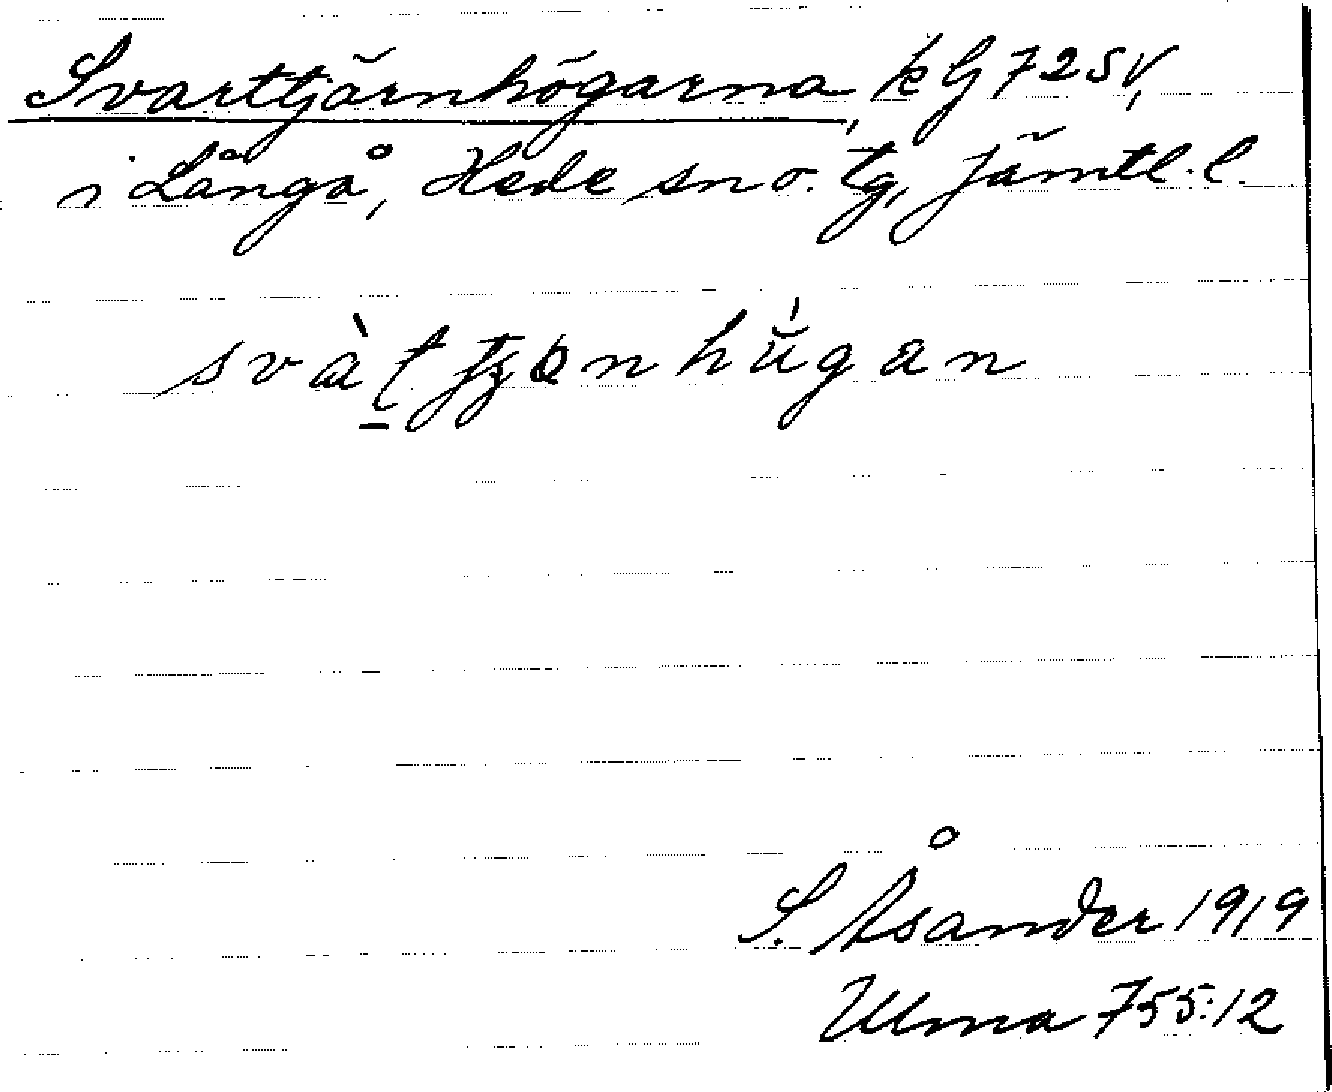 Svarttjärnhögarna, kG 72 SV,
i Långå, Hede sn o. tg, Jämtl. l.
S. Åsander 1919
Ulma 755:12